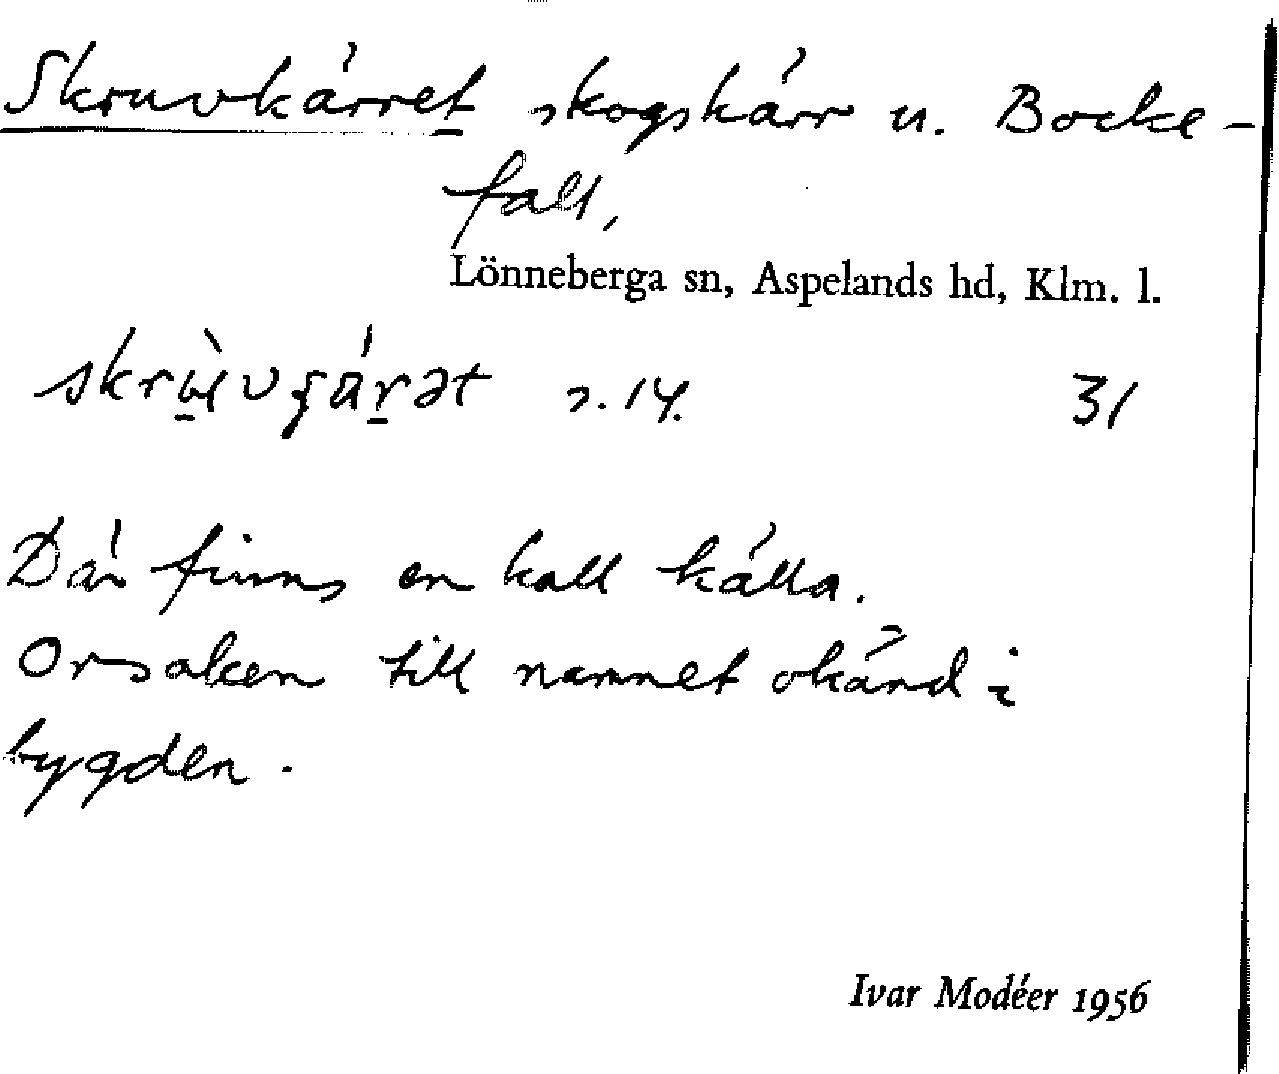 Skruvkärret skogskärr u. Bocke-
fall,
Lönneberga sn, Aspelands hd, Klm. l.
s. 14. 31
Där finns en kall källa.
Orsaken till namnet okänd i
bygden.
Ivar Modéer 1956